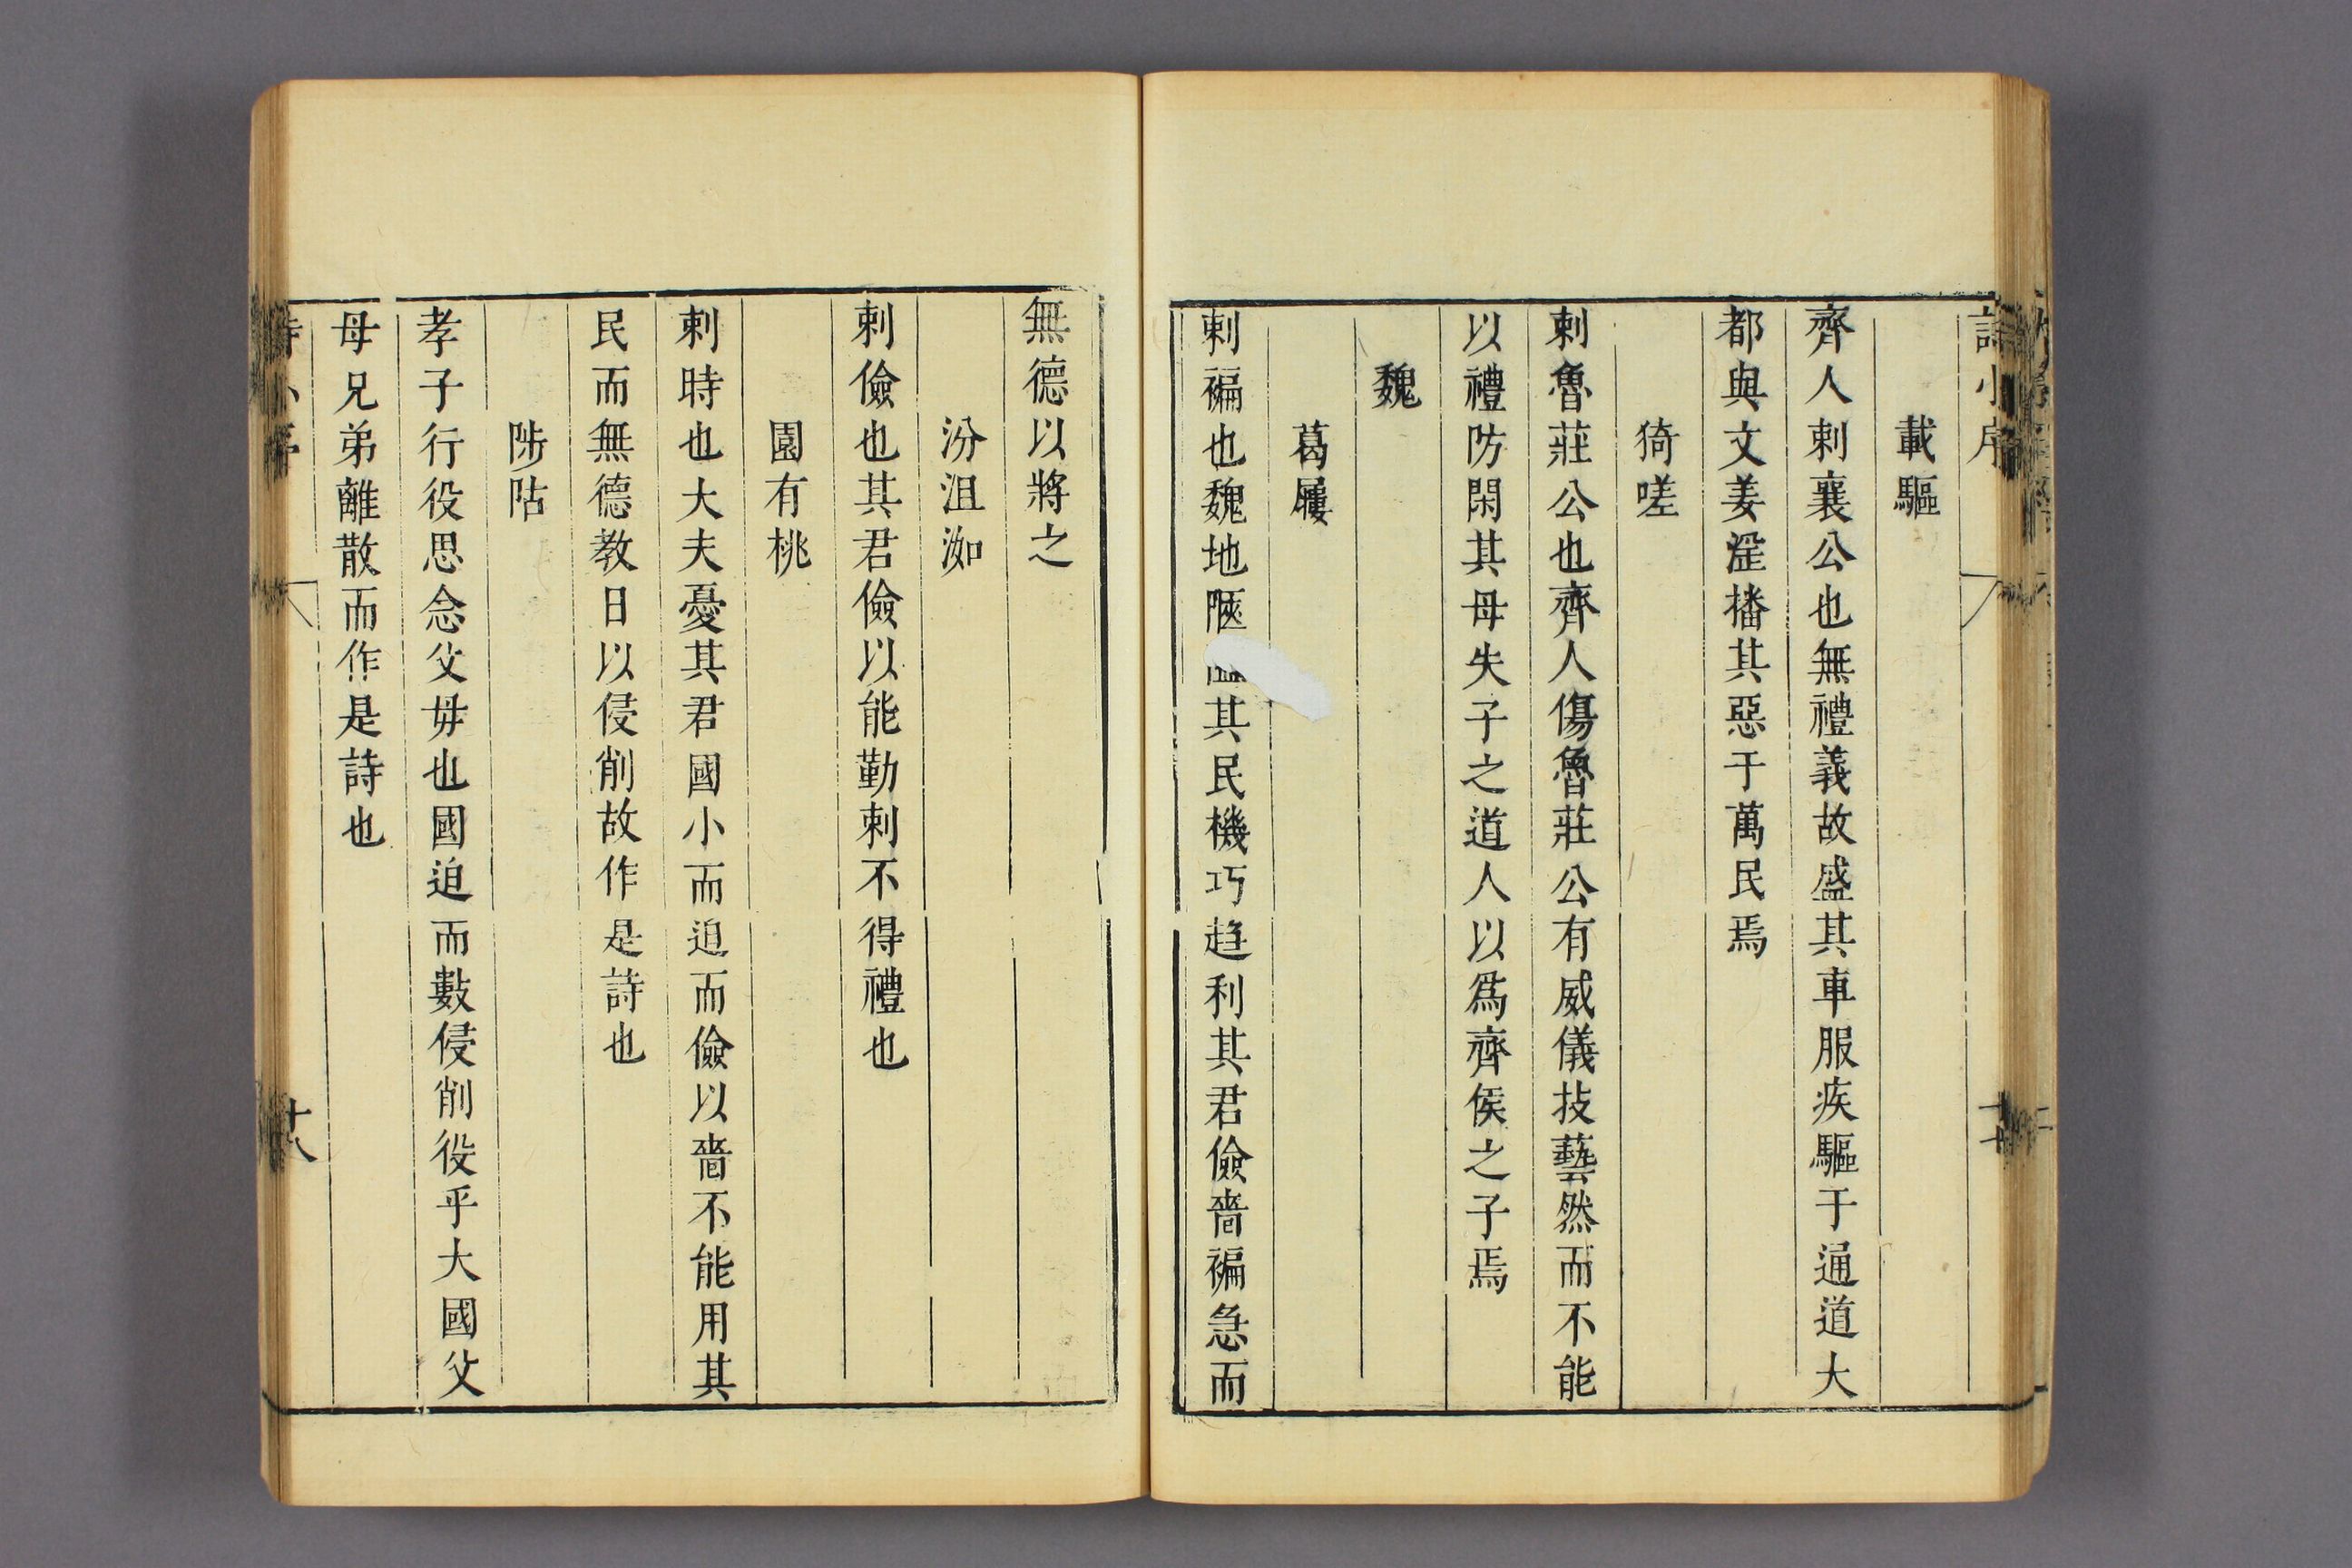 詩小序
載驅
齊人刺襄公也無禮義故盛其車服疾驅于通道大
都與文姜淫播其惡于萬民焉
猗嗟
刺魯莊公也齊人傷魯莊公有威儀技藝然而不能
以禮防閑其母失子之道人以爲齊侯之子焉
魏
葛屨
刺褊也魏地陿其民機巧趨利其君儉嗇褊急而
無德以將之
汾沮洳
刺儉也其君儉以能勤刺不得禮也
園有桃
刺時也大夫憂其君國小而迫而儉以嗇不能用其
民而無德教日以侵削故作是詩也
陟岵
孝子行役思念父母也國迫而數侵削役乎大國父
母兄弟離散而作是詩也
十八